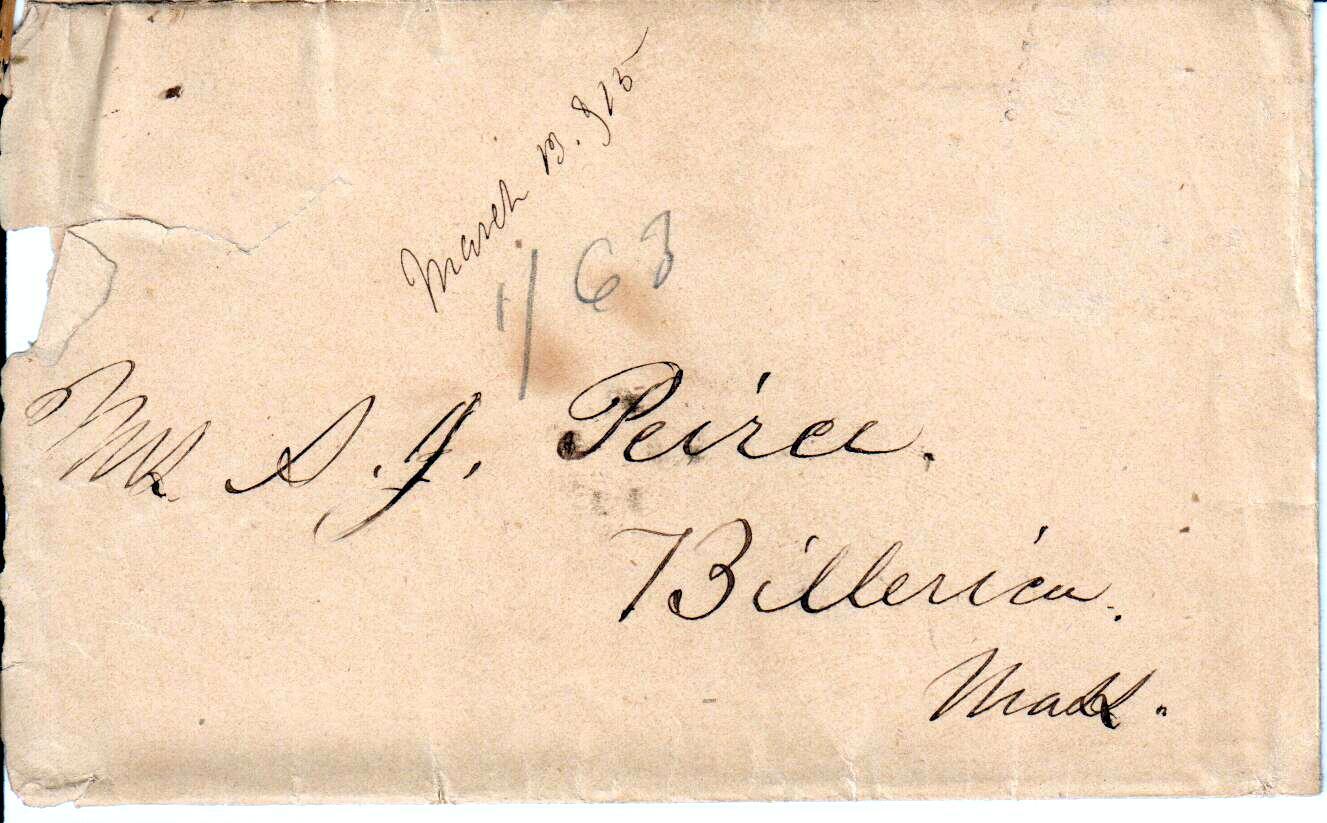 March 13.
63
Mrs. S. J. Peirce.
Billerica.
Mass.